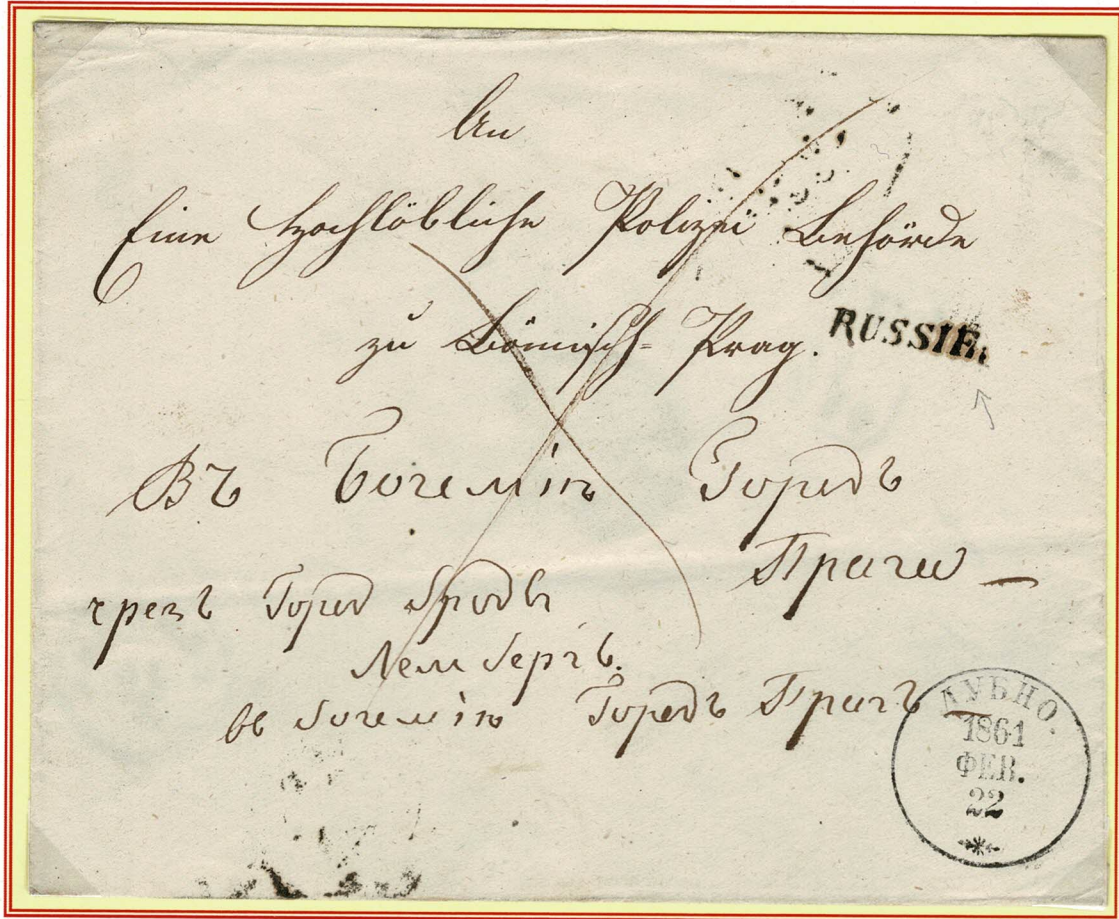 An
Eine Hochlöbliche Polizei Behörde
zu Bömisch- Prag.
RUSSIE.
Въ Богемію Городъ
Праги
чрезъ Город Броды
Лембергъ.
въ богемію Городъ Прагъ
ДУБНО.
1861
ФЕВ.
22